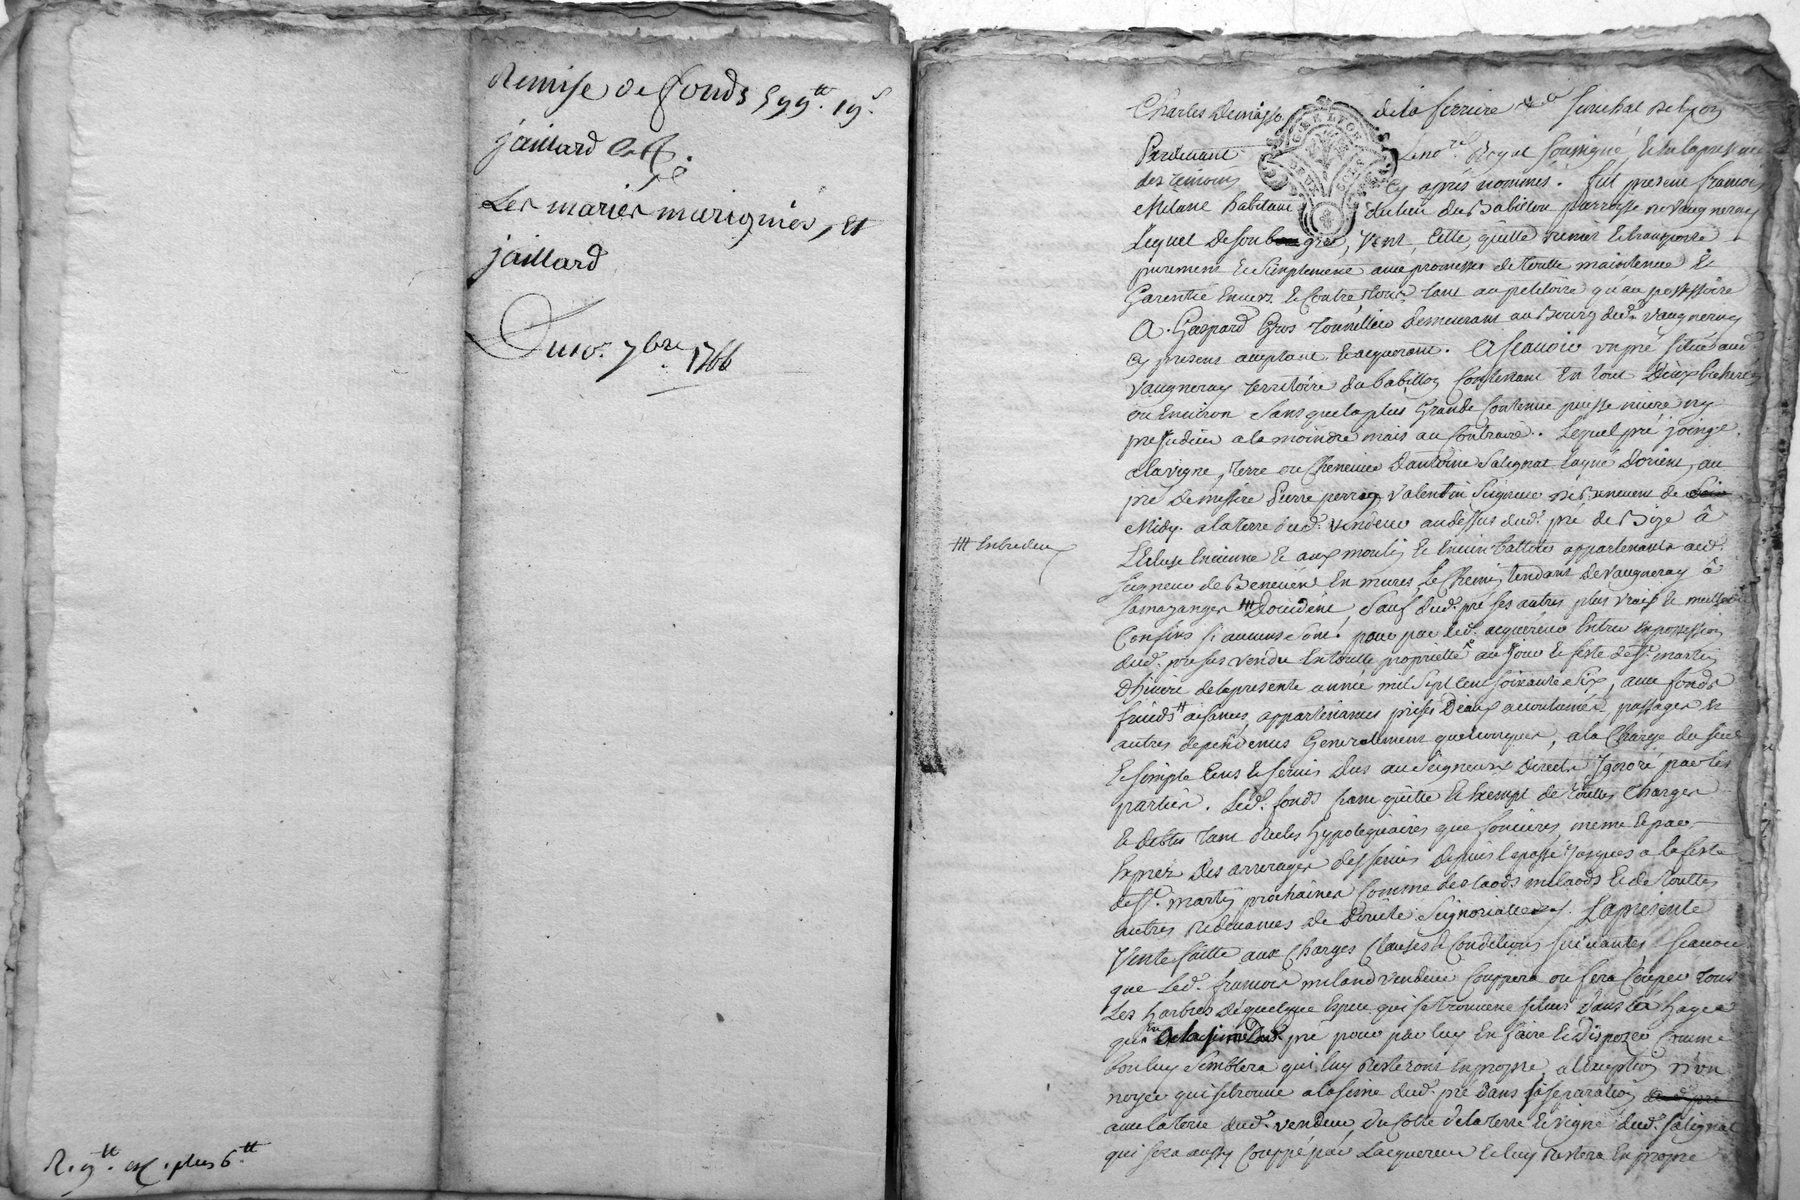 Remise de fonds 599ᵗᵗ. 19ˢ
jaillard
Les mariés marignies, et
jaillard
Du 10ᵉ. 7bre. 1766
R. 9ᵗᵗ. plus 6ᵗᵗ
Charles Demasso de la ferriere senechal de lyon
GNE LYON
Pardevant Le noʳᵉ Royal soussigné, et en la presence
des temoins cy après nommés. fut present francois
Milane habitant du lieu du Babillon parroisse de vaugneray
Lequel de son gré, vent, cede, quitte, remet et transporte
purement et simplement avec promesses de toutte maintenue et
Garentie envers et contre tous tant au petitoire qu'au possessoire
A Gaspard Gros tonnellier demeurant au Bourg dud. vaugneray
cy present acceptant et acquerant. Ascavoir un pré situé aud.
vaugneray territoire du babillon contenant en tout deux bicherées
ou environ sans que la plus Grande contenue puisse nuire ny
prejudicier a la moindre mais au contraire. Lequel pré joingt
a la vigne, terre ou cheneviere d'antoine Salignat d'orient, au
pré de messire pierre perrin valentin Seigneur de Benevent de
Midy. a la terre dud. vendeur au dessus dud. pré de Bize à
L'ecluse ancienne et aux moulin et ancien battoir appartenants aud.
Seigneur de Benevent en mures, le chemin tendant de vaugneray à
# entre deux
# D'occident, sauf dud. pré ses autres plus vrais et meilleurs
Confins si aucuns sont. pour par led. acquereur entrer en possession
dud. pré sus vendu en toutte proprietté au jour et feste de Sᵗ. martin
D'hiver de la presente année mil sept cent soixante six, avec fonds
aisances, appartenances prises d'eaux accoutumées passages et
autres dependences Generalement quelconques, a la charge du seul
et simple cens et servis dus au Seigneur Direct, Ignoré par les
parties. Led. fonds franc quitte et exempt de touttes charges
et debtes tant Reeles hypotequaires que foncieres, meme et par
exprez des arrerages desd. servis depuis le passé jusques a la feste
de Sᵗ. martin prochaine, comme des laods milaods et de touttes
autres Redevances de Seignorialle. La presente
Vente faitte aux charges clauses et conditions suivantes scavoir
que Led. francois miland vendeur couppera ou fera couper tous
Les harbres de quelque espece qui se trouvent situés dans les hayes
que a la sime dud. pré pour par luy en faire et disposer comme
bon luy semblera qui luy resteront en propre, a l'exception d'un
noyer qui se trouve a la sime dud. pré dans la separation
avec la terre dud. vendeur, du cotté de la terre et vigne dud. Salignat
qui sera aussy couppé par L'acquereur et luy restera en propre